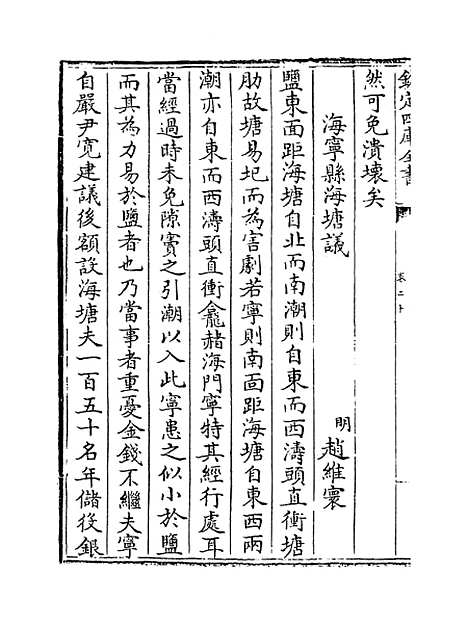 欽定四庫全書
卷二十
然可免潰壞矣
海寧縣海塘議
明
趙維寰
鹽東面距海塘自北而南潮則自東而西濤頭直衝塘
肋故塘易圮而為害劇若寧則南面距海塘自東西兩
潮亦自東而西濤頭直衝龕赭海門寧特其經行處耳
當經過時未免隙竇之引潮以入此寧患之似小於鹽
而其為力易於鹽者也乃當事者重憂金錢不繼夫寧
自嚴尹寛建議後額設海塘夫一百五十名年儲役銀